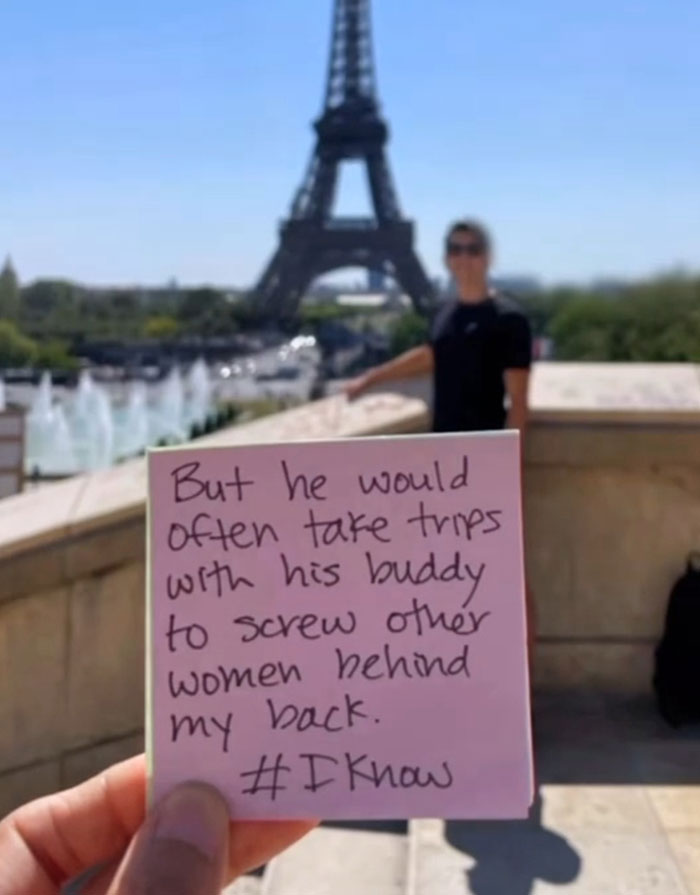 But he would
often take trips
with his buddy
to screw other
women behind
my back.
#IKnow